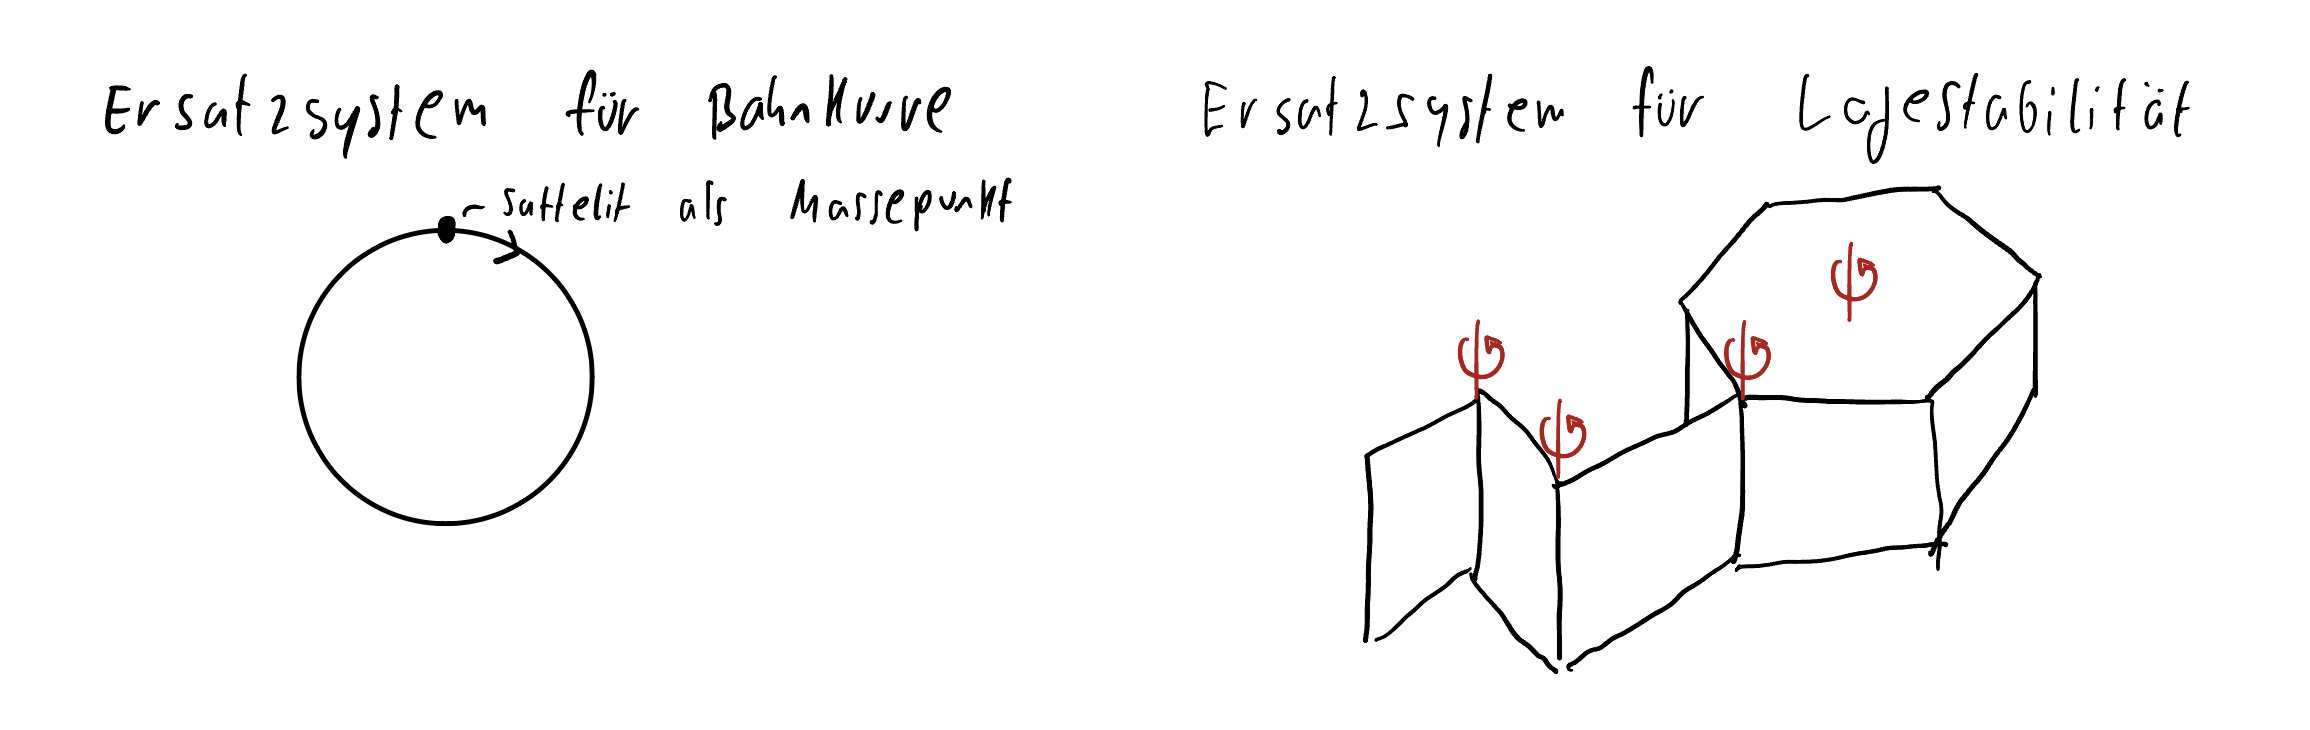 Ersatzsystem für Bahnkurve
Sattelit als Massepunkt
Ersatzsystem für Lagestabilität